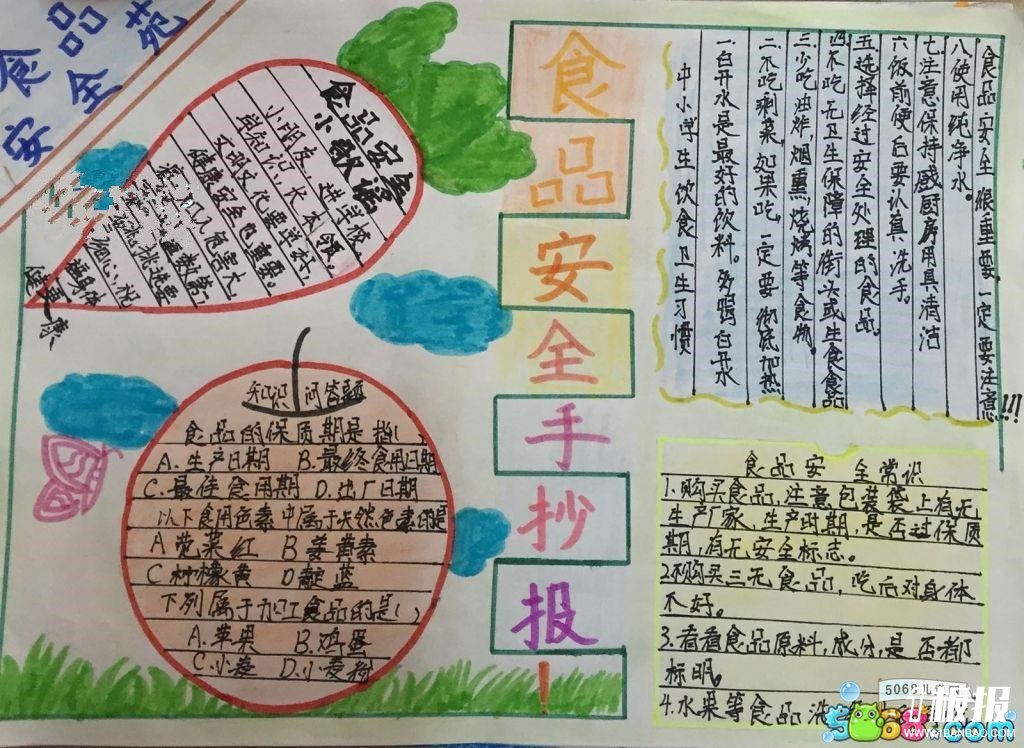 食品安全苑
食品安全
小歌谣
小朋友，进学校
学知识，长本领。
文明文化要学好，
健康安全也重要。
身体
健康
知识问答题
食品的保质期是指( )
A.生产日期 B.最终食用日期
C.最佳食用期 D.出厂日期
以下食用色素中属于天然色素的是
A苋菜红 B姜黄素
C柠檬黄 D靛蓝
下列属于加工食品的是( )
A.苹果 B.鸡蛋
C.小麦 D.小麦粉
食品安全手抄报！
中小学生饮食卫生习惯
一白开水是最好的饮料。多喝白开水
二.不吃剩菜，如果吃，一定要彻底加热
三少吃油炸，烟熏烧烤等食物。
四不吃无卫生保障的街头或生食食品
五选择经过安全处理的食品。
六饭前便后要认真洗手。
七.注意保持感厨房用具清洁
八使用纯净水。
食品安全很重要，一定要注意!!!
食品安全常识
1.购买食品，注意包装袋上有无
生产厂家、生产时期，是否过保质
期，有无安全标志。
2.不购买三无食品，吃后对身体
不好。
3.看看食品原料，成分，是否都
标明。
4.水果等食品洗
5068儿童
板报
WWW.1BANBAO.COM